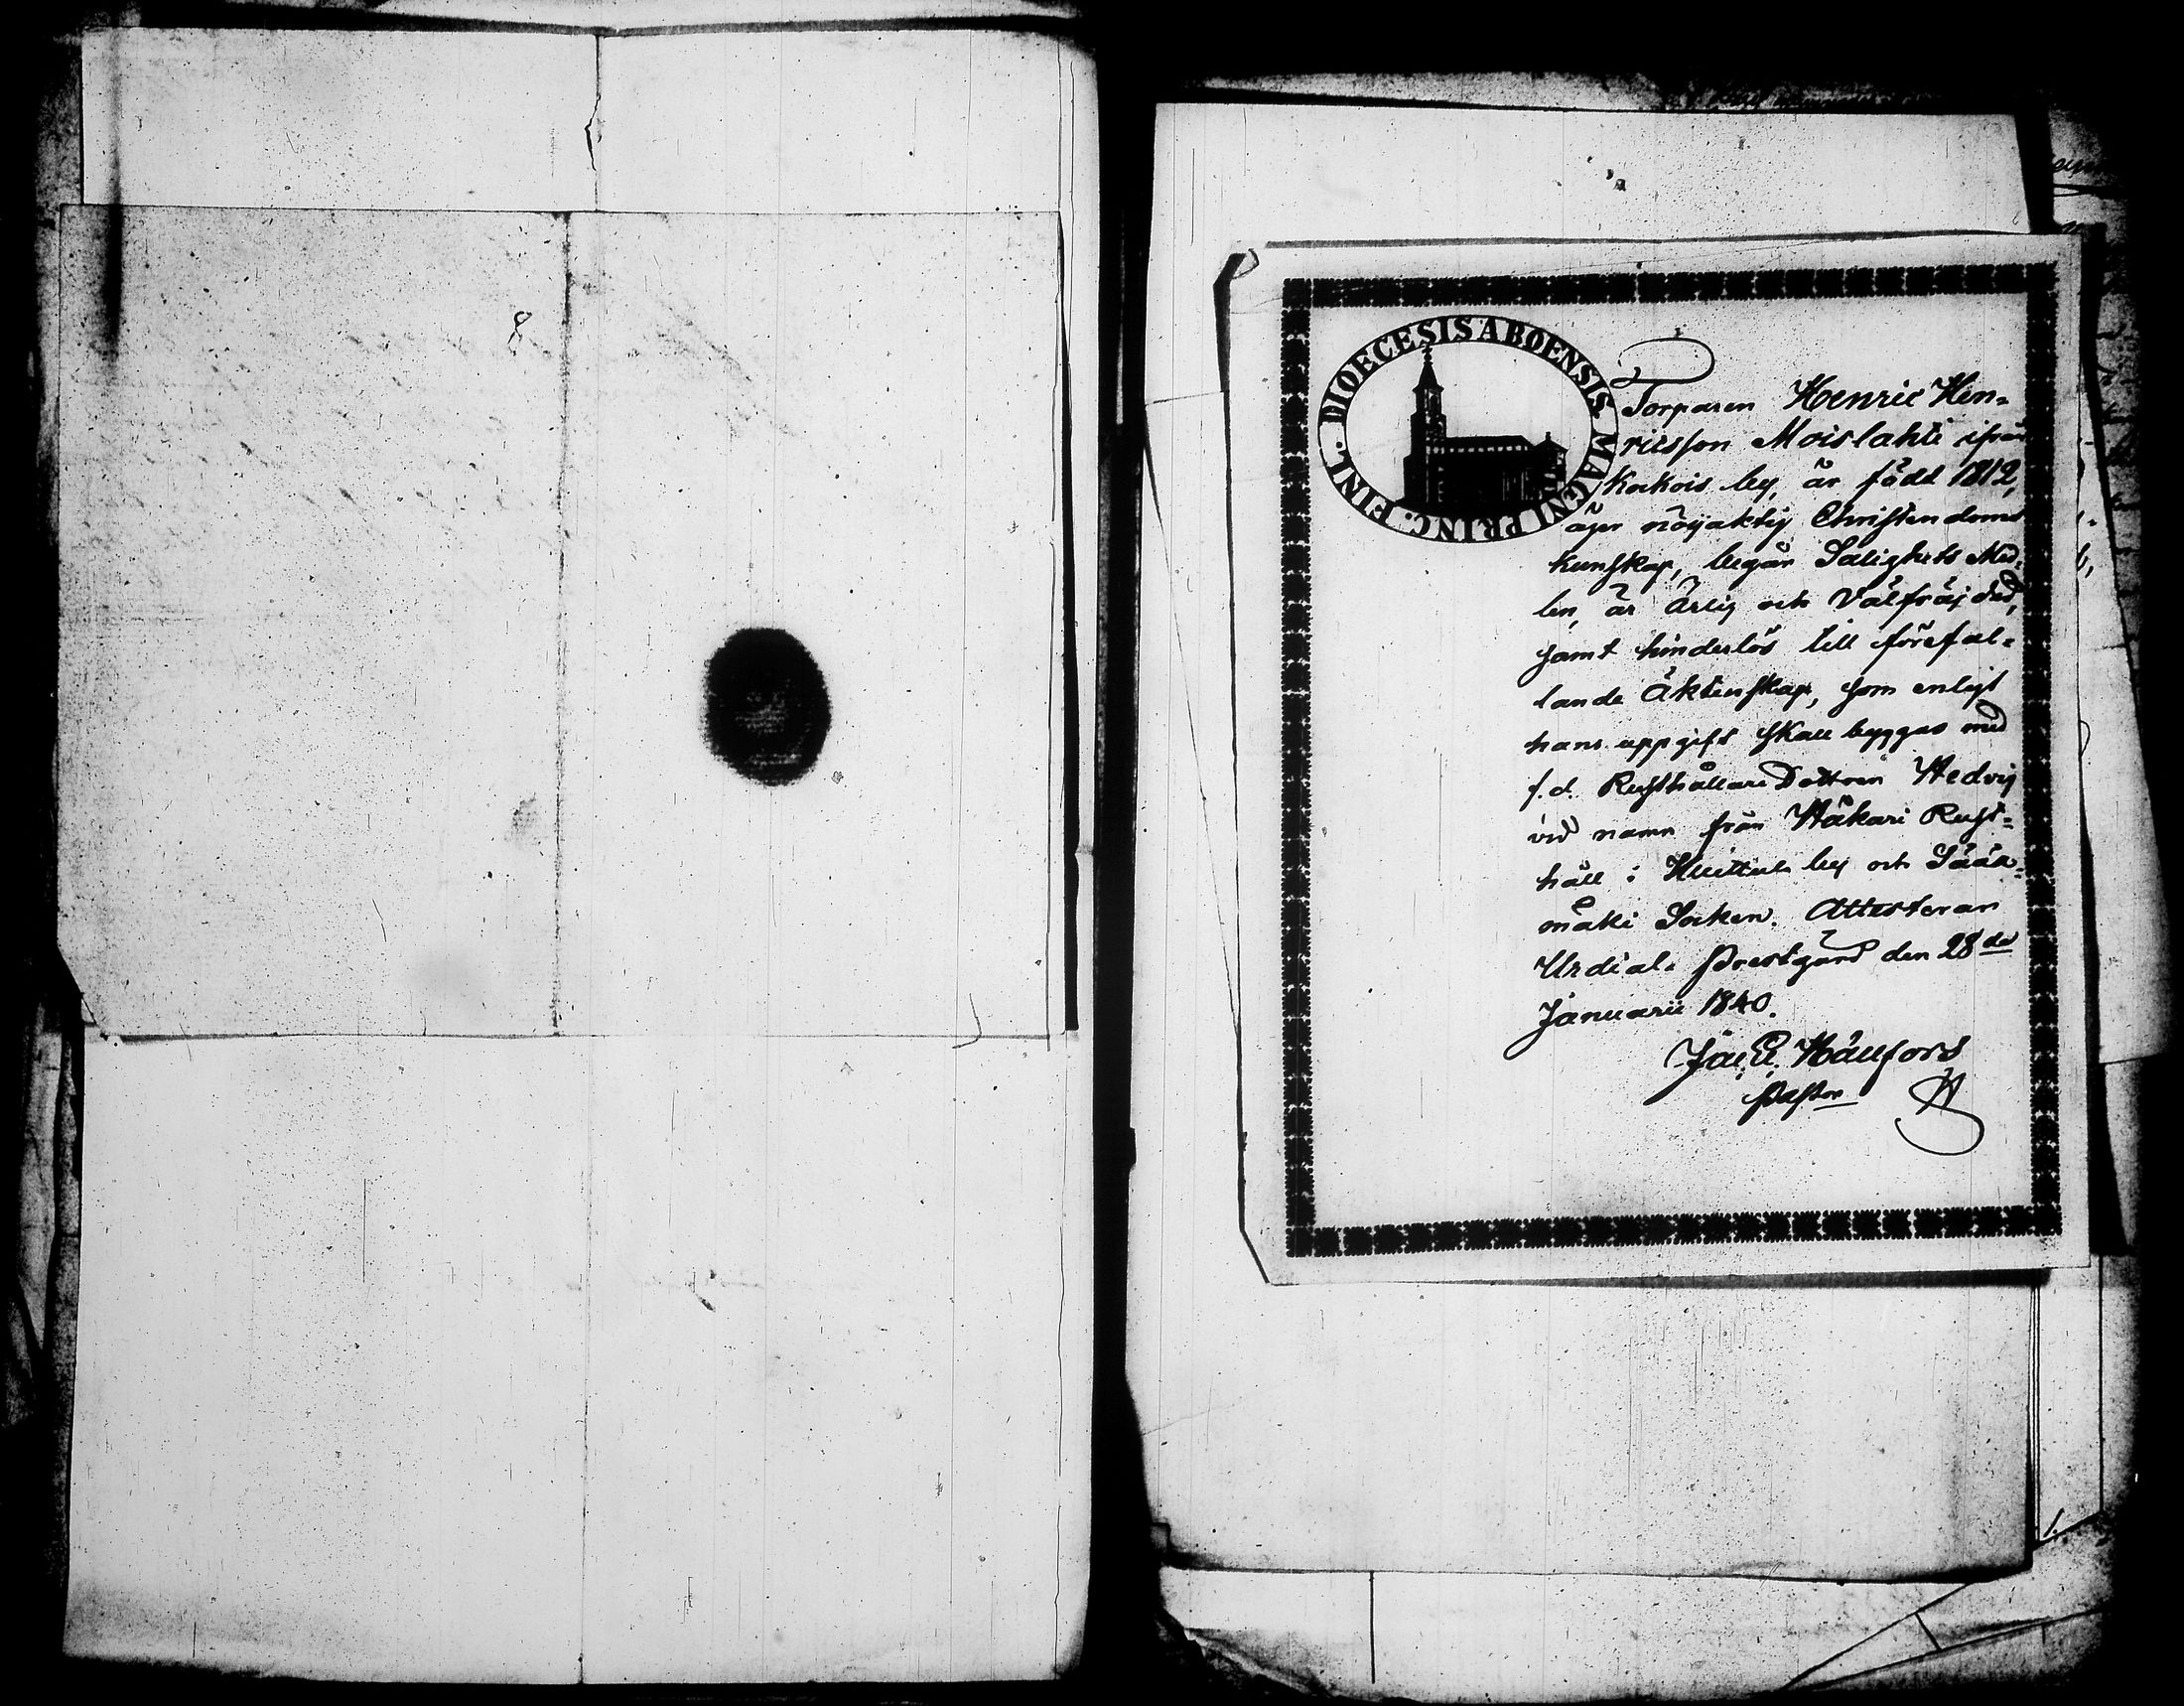 8
DIOECESIS ABOENSIS MAGNI PRINC. FINL.
Torparen Henric Hen-
ricsson Moislahti ifrån
Kokois by, är född 1812,
äger nöijaktig Christendoms
kunskap, begår Salighets Med-
len, är Ärlig och Välfräjdad,
samt hinderlös till förefal-
lande Äktenskap, som enligt
hans uppgift skall byggas med
f.d. Rusthållare Dottren Hedvig
vid namn från Häkari Rust-
håll i by och Sääx-
mäki Socken. Attesterar
Urdiala Prestgård den 28de
Januarii 1840.
Hällfors
Pastor